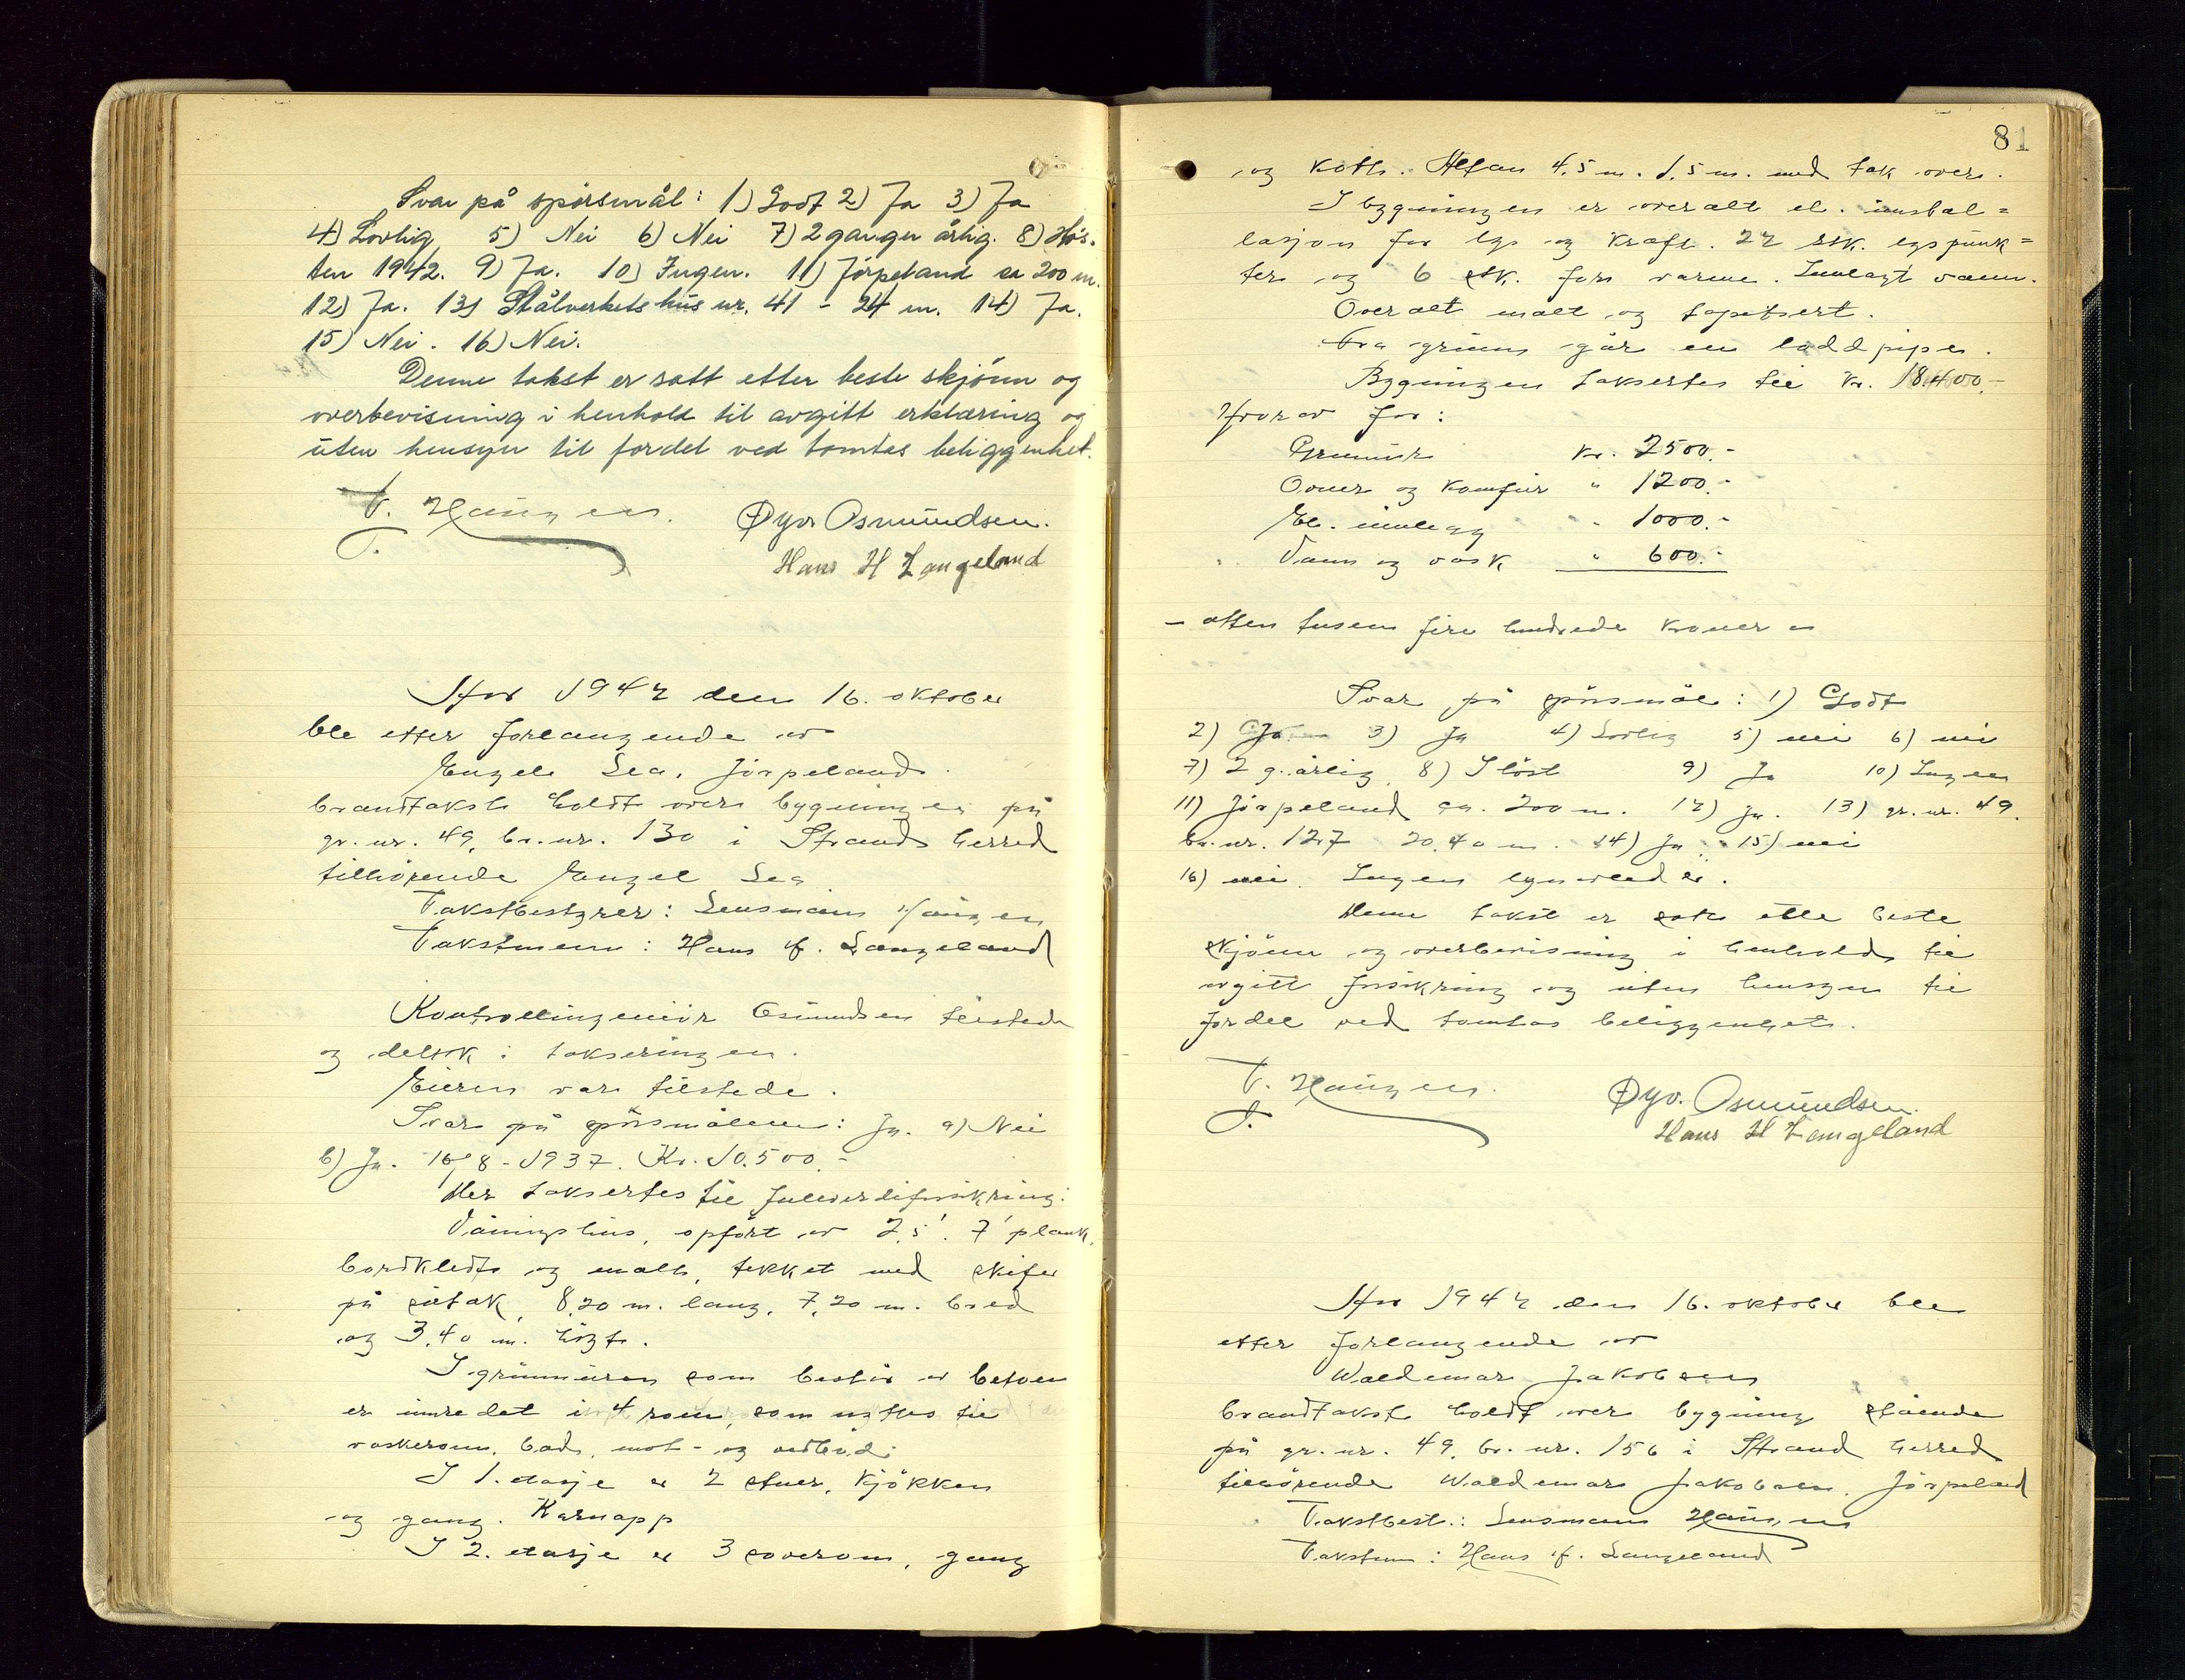 Svar på spörsmål: 1) Godt 2) Ja 3) Ja
4) Lovlig, 5) Nei 6) Nei 7) 2 ganger årlig. 8) Hös-
ten 1942. 9) Ja. 10) Ingen. 11) Jörpeland ca 200 m.
12) Ja. 13) Stålverkets hus nr. 41 - 24 m. 14) Ja.
15) Nei. 16) Nei.
Denne takst er satt etter beste skjönn og
overbevisning i henhold til avgitt erklæring og
uten hensyn til fordel ved tomtas beliggenhet.
T. Haugen. Øyv Osmundsen.
Hans H Langeland
År 1942 den 16. oktober
ble etter forlangende av
Engel Lea, Jörpeland
brandtakst holdt over bygningen på
gr. nr. 49, br. nr. 130 i Strand herred
tilhörende Engel Lea
Takstbestyrer: Lensmann Haugen
Takstmenn: Hans H. Langeland
Kontrollingeniör Osmundsen tilstede
og deltok i takseringen.
Eieren var tilstede.
Svar på spörsmålene: Ja. a) Nei
b) Ja. 16/8-1937. Kr. 10.500.-
Her taksertes til fullverdiforsikring:
Våningshus, opfört av 2,5" . 7" plank,
bordkledt og malt, tekket med skifer
på sutak, 8,20 m. lang, 7,20 m. bred
og 3,40 m. högt.
I grunnmuren som består av betong
er innredet i 4 rom, som nyttes til
vaskerom, bad, mat- og vedbod.
I 1. etasje er 2 stuer, kjökken
og gang. Karnapp
I 2. etasje er 3 soverom, gang
81
og kott. Altan 4,5 m. 1,5 m. med tak over.
I bygningen er overalt el. instal=
lasjon for lys og kraft. 22 stk. lyspunk=
ter og 6 stk. for varme. Innlagt vann.
Overalt malt og tapetsert.
Fra grunn går en loddpipe.
Bygningen taksertes til kr. 18.400.-
Hvorav for:
Grunnmur kr. 2500.-
Ovner og komfur " 1200.-
El. innlegg " 1000.-
Vann og vask " 600.-
- atten tusen fire hundrede kroner -
Svar på spörsmål: 1) Godt
2) Ja 3) Ja 4) Lovlig 5) nei 6) nei
7) 2 g. årlig 8) I höst 9) Ja 10) Ingen
11) Jörpeland ca. 200 m. 12) Ja. 13) gr. nr. 49.
br. nr. 127 20,40 m. 14) Ja 15) nei
16) nei. Ingen lynavleder.
Denne takst er satt etter beste
skjönn og overbevisning i henhold til
avgitt forsikring og uten hensyn til
fordel ved tomtas beliggenhet.
T. Haugen. Øyv. Osmundsen.
Hans H Langeland
År 1942 den 16. oktober ble
etter forlangende av
Waldemar Jakobsen
brandtakst holdt over bygning stående
på gr. nr. 49, br. nr. 156 i Strand herred
tilhörende Waldemar Jakobsen, Jörpeland
Takstbest.: Lensmann Haugen
Takstm: Hans H. Langeland